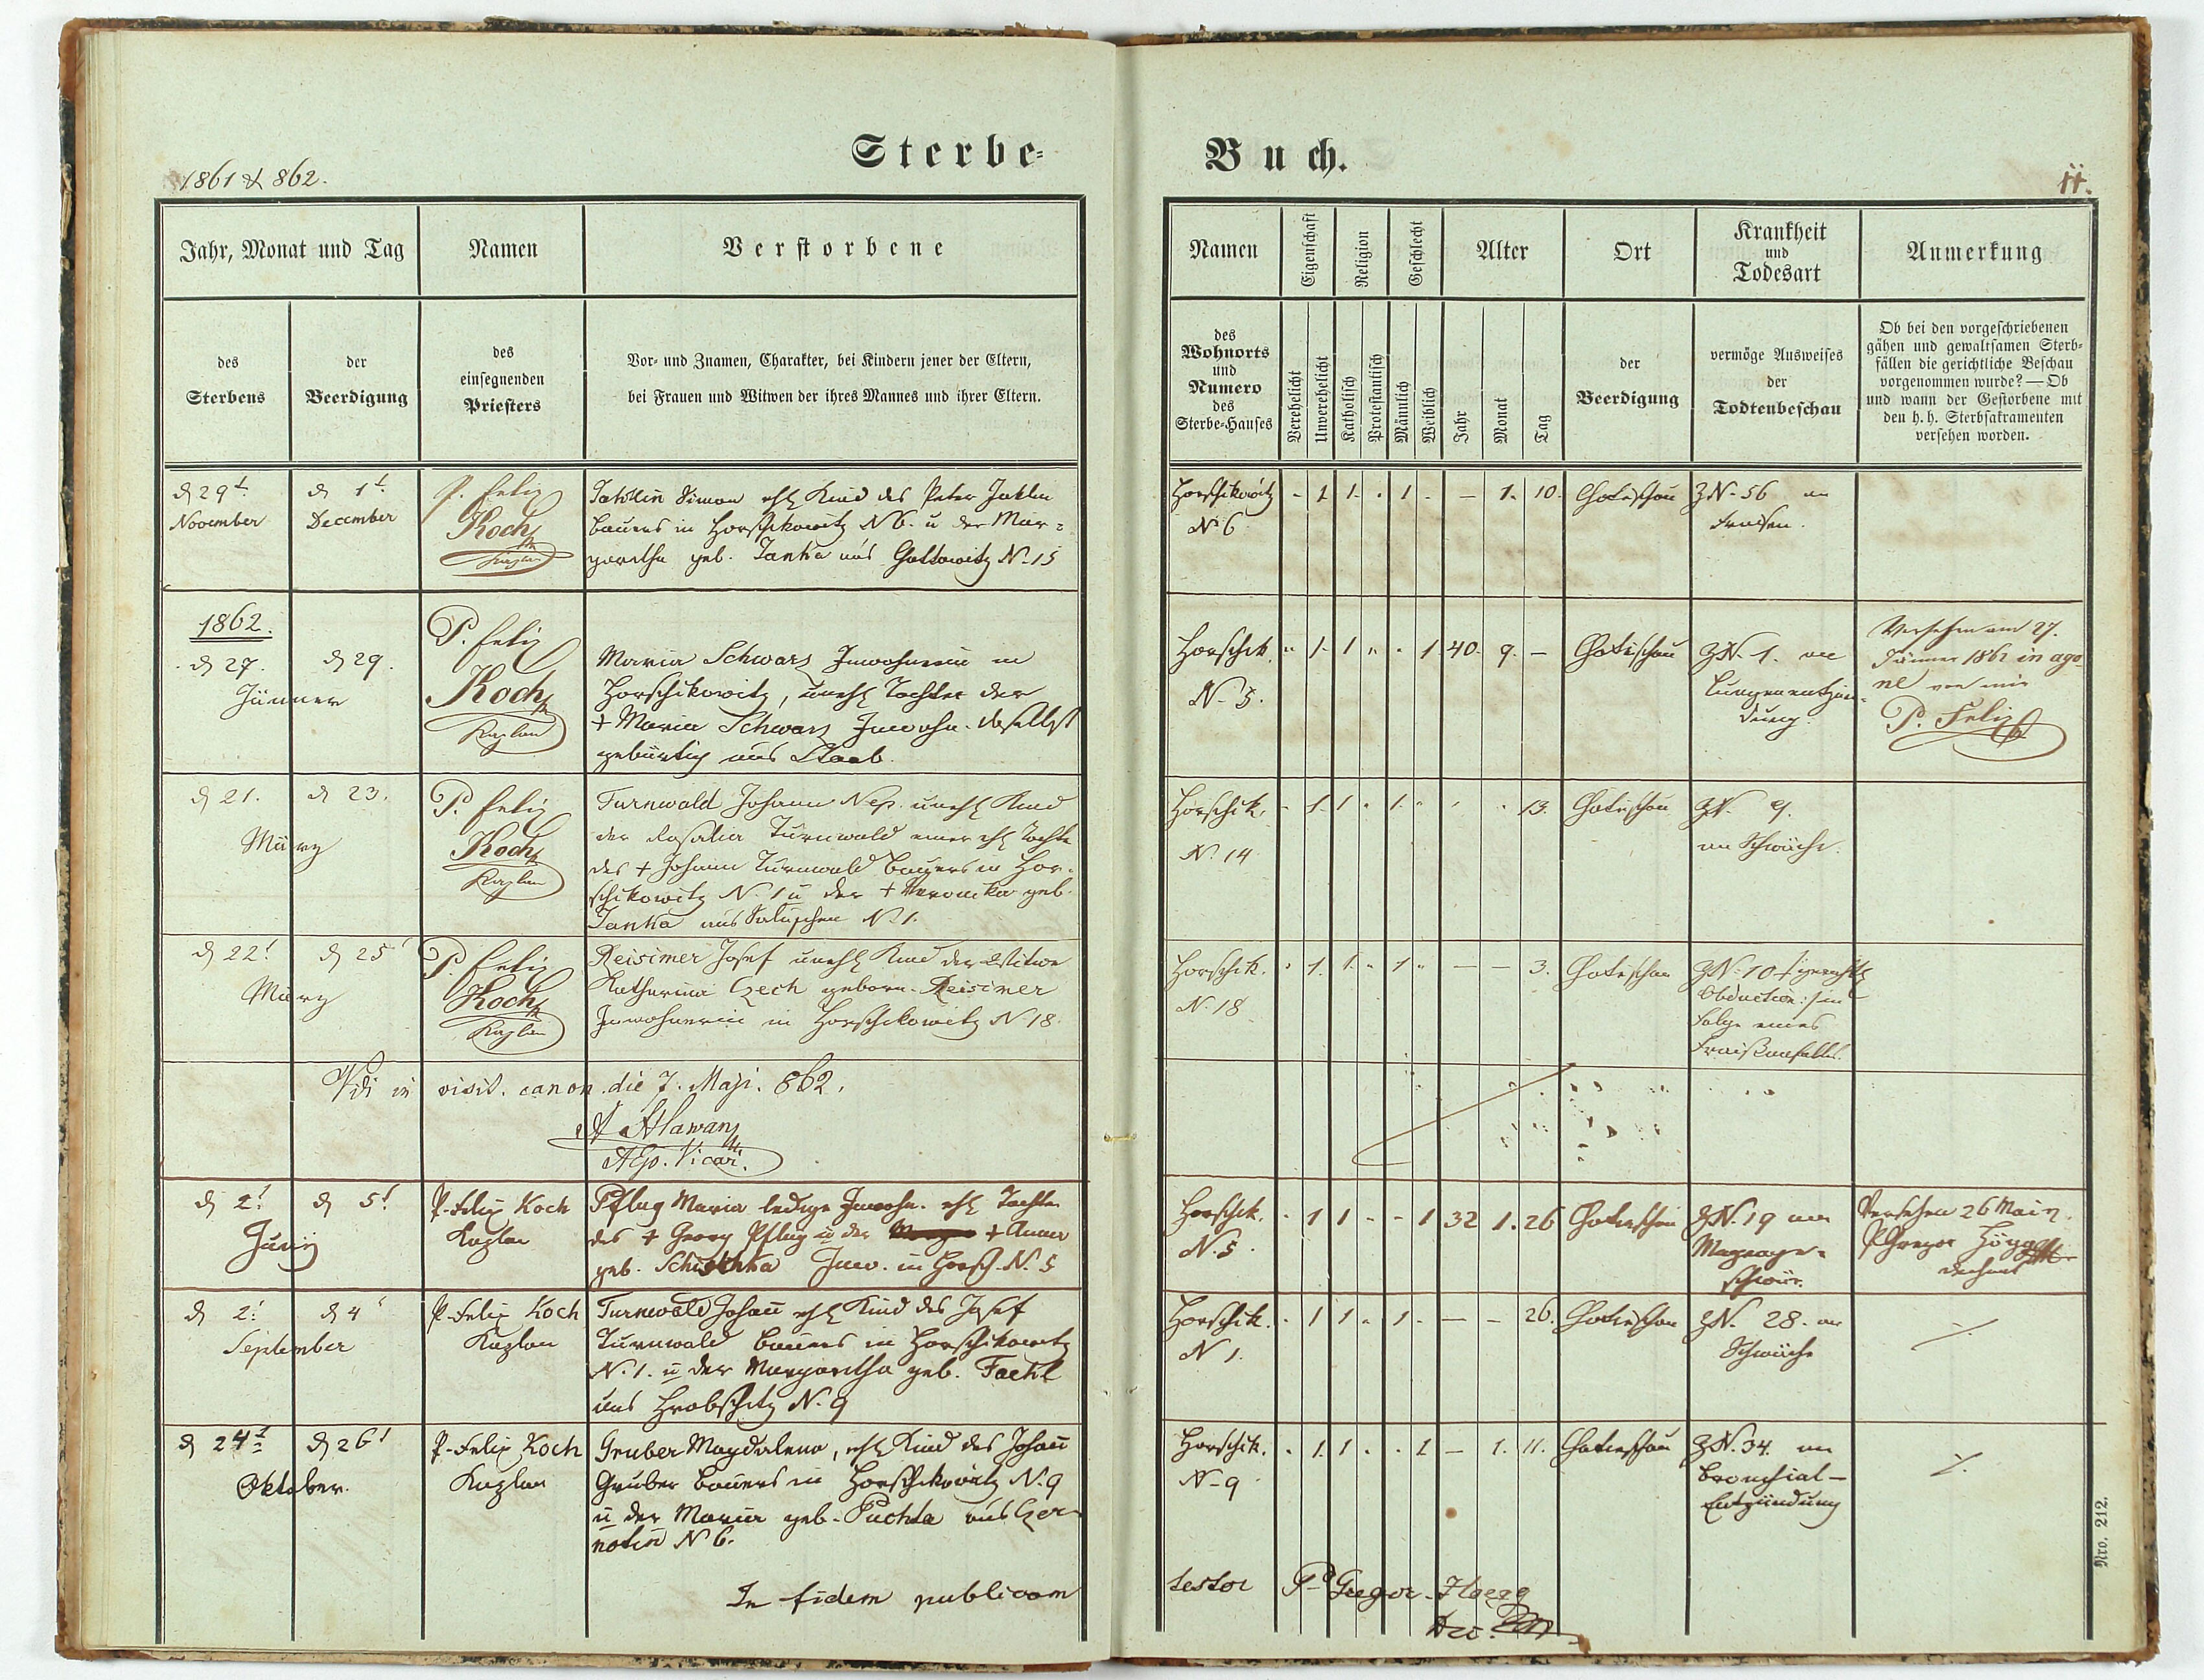 1861 & 862.
Sterbe-
Buch.
11.
Jahr, Monat und Tag
Namen
Verstorbene
des
Sterbens
der
Beerdigung
des
einsegnenden
Priesters
Vor- und Znamen, Charakter, bei Kindern jener der Eltern,
bei Frauen und Witwen der ihres Mannes und ihrer Eltern.
Namen
Eigenschaft
Religion
Geschlecht
Alter
Ort
Krankheit
und
Todesart
Anmerkung
des
Wohnorts
und
Numero
des
Sterbe-Hauses
Verehelicht
Unverehelicht
Katholisch
Protestantisch
Männlich
Weiblich
Jahr
Monat
Tag
der
Beerdigung
vermöge Ausweises
der
Todtenbeschau
Ob bei den vorgeschriebenen
gähen und gewaltsamen Sterb-
fällen die gerichtliche Beschau
vorgenommen wurde? — Ob
und wann der Gestorbene mit
den h. h. Sterbsakramenten
versehen worden.
d 29t
November
d 1t
December
P. Felix
Koch
Kaplan
Simon ehl Kind des Peter
Bauers in Horschikowitz N 6. u der Mar-
garetha geb. Janka aus Gottowitz N. 15
Horschikowitz
N 6
- 1 1 - 1 - - 1. 10.
Chotieschau
ZN. 56 an
Fraisen.
1862.
d 27. d 29.
Jänner
P. Felix
Koch
Kaplan
Maria Schwarz Inwohnerin in
Horschikowitz, unehl Tochter der
+ Maria Schwarz Inwohn. daselbst
gebürtig aus Staab.
Horschik.
N. 5.
" 1 1 " " 1 40. 9. -
Chotieschau
ZN. 1. an
Lungenentzün-
dung.
Versehen am 27.
Jänner 1862 in ago-
ne von mir
P. Felix
d 21. d 23.
März
P. Felix
Koch
Kaplan
Turnwald Johann Nep. unehl Kind
der Rosalia Turnwald einer ehl Tochter
des + Johann Turnwald Bauers in Hor-
schikowitz N 1 u der + Veronika geb.
Janka aus N. 1.
Horschik.
N. 14
- 1 1 " 1 " " " 13.
Chotieschau
ZN. 9.
an Schwäche.
d 22t d 25t
März
P. Felix
Koch
Kaplan
Reisimer Josef unehl Kind der Witwe
Katharina Czech geborn. Reisimer
Inwohnerin in Horschikowitz N. 18.
Horschik.
N. 18
" 1. 1. " 1 " - - 3.
Chotieschau
ZN. 10
Obduction: in
Folge eines
Fraisanfalls.
Vidi in visit. canon. die 7. Maji. 862.
Vicar.
d 2t d 5t
Junij
P. Felix Koch
Kaplan
Pflug Maria ledige Inwohn. ehl Tochter
des + Georg Pflug u der + Anna
geb. Inw. in Horsch. N. 5
Horschik.
N. 5
- 1 1 - - 1 32 1. 26
Chotieschau
ZN. 19 an
Magenge-
schwür.
Versehen 26 Mai
P Gregor
Dechant
d 2t d 4t
September
P. Felix Koch
Kaplan
Turnwald Johan ehl Kind des Josef
Turnwald Bauers in Horschikowitz
N. 1. u der Margaretha geb.
aus Hrobschitz N. 9
Horschik.
N 1.
- 1 1 " 1 - - - 26.
Chotieschau
ZN. 28. an
Schwäche
d 24t d 26t
Oktober.
P. Felix Koch
Kaplan
Gruber Magdalena, ehl Kind des Johan
Gruber Bauers in Horschikowitz N. 9
u der Maria geb. Puchta aus Czer-
notin N 6.
Horschik.
N. 9
- 1. 1 - - 1 - 1. 11.
Chotieschau
ZN. 34. an
Bronchial-
Entzündung
In fidem publicam
testor P. Gregor
Nro. 212.